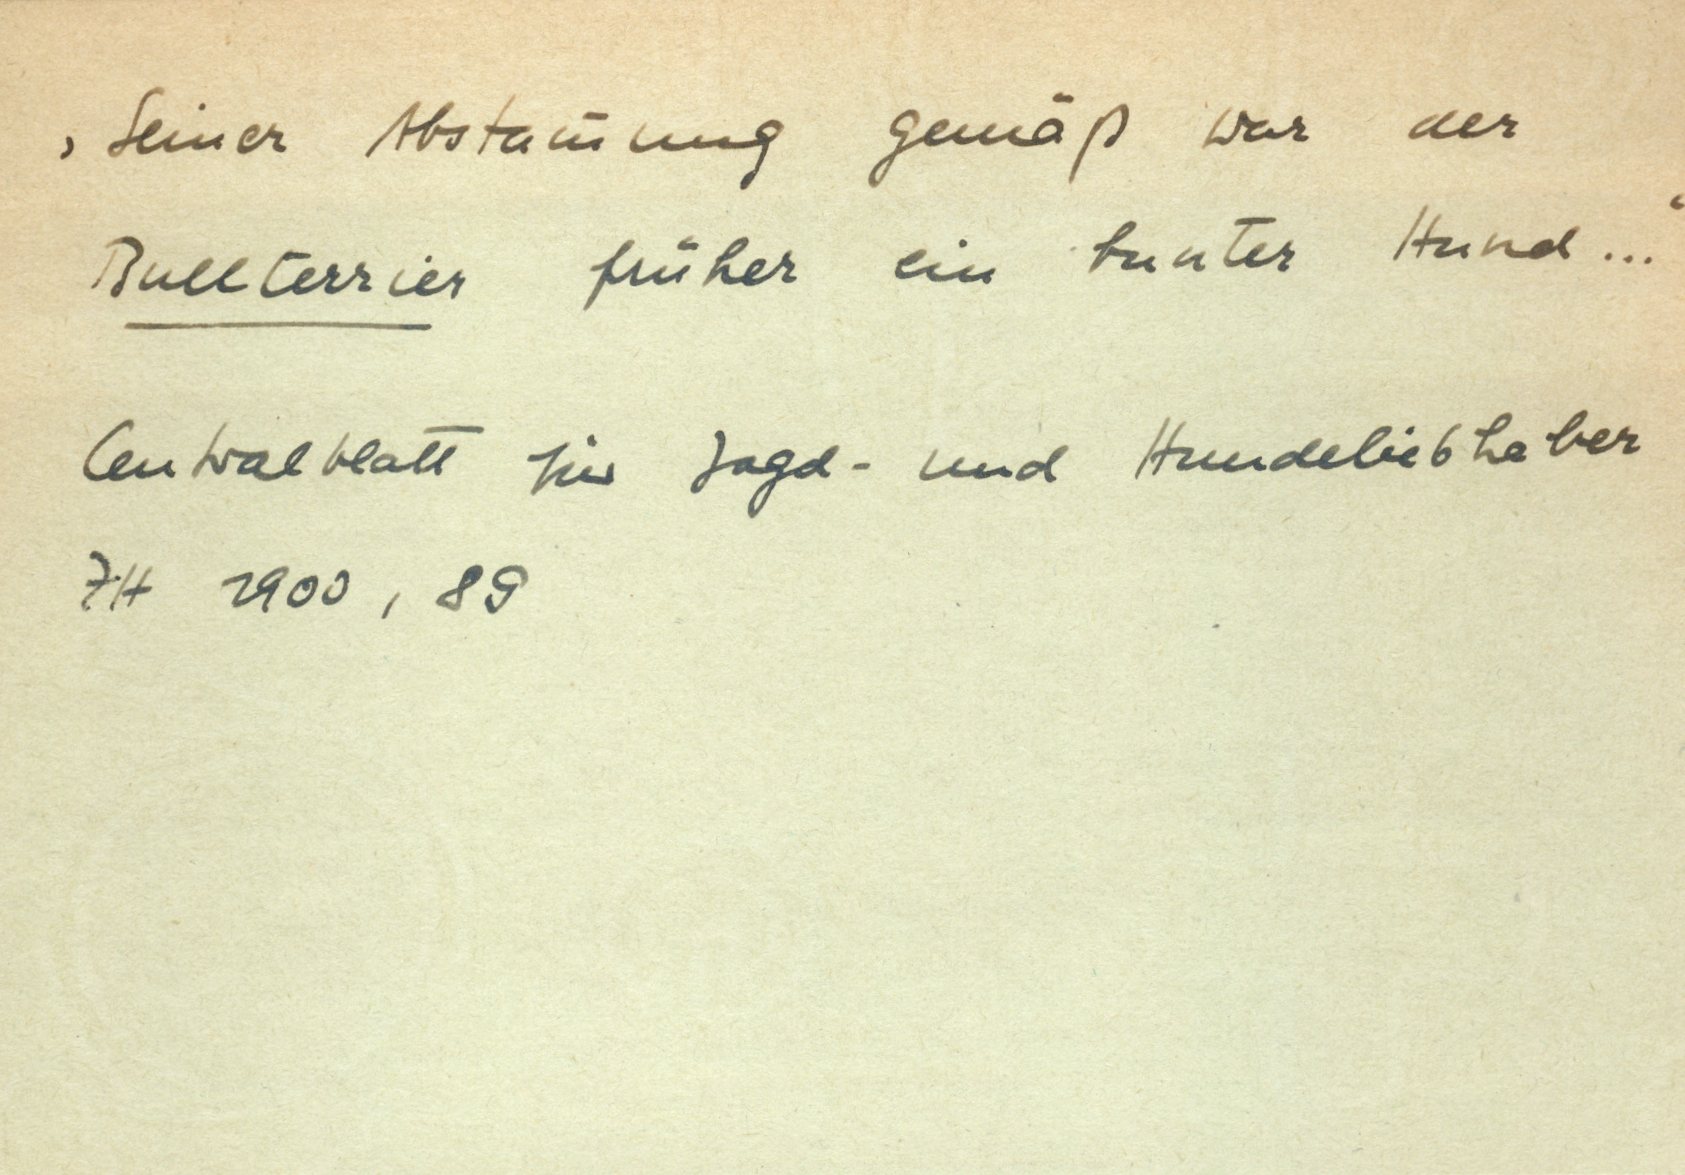 ‚Seiner Abstam̄ung gemäß war der
Bullterrier früher ein bunter Hund...‘
Centralblatt für Jagd- und Hundeliebhaber
ZH 1900, 89